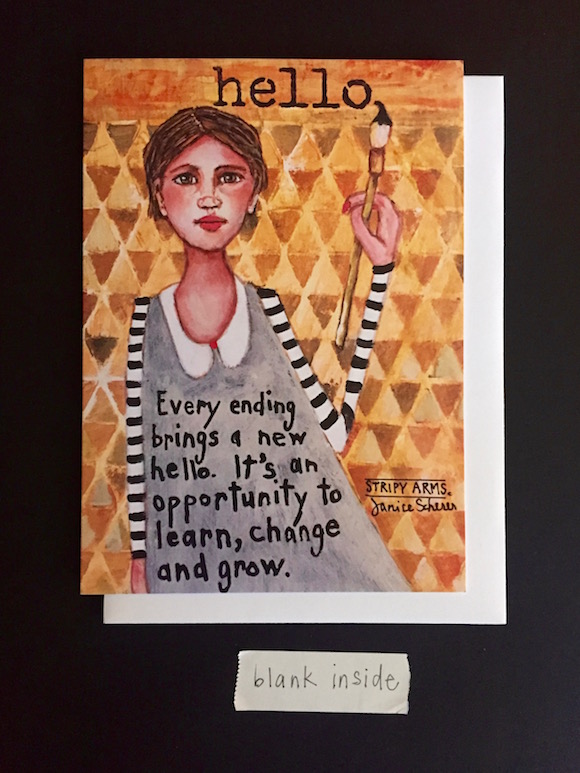 hello
Every ending
brings a new
hello. It's an
opportunity to
learn, change
and grow.
STRIPY ARMS.
Janice Scherer
blank inside